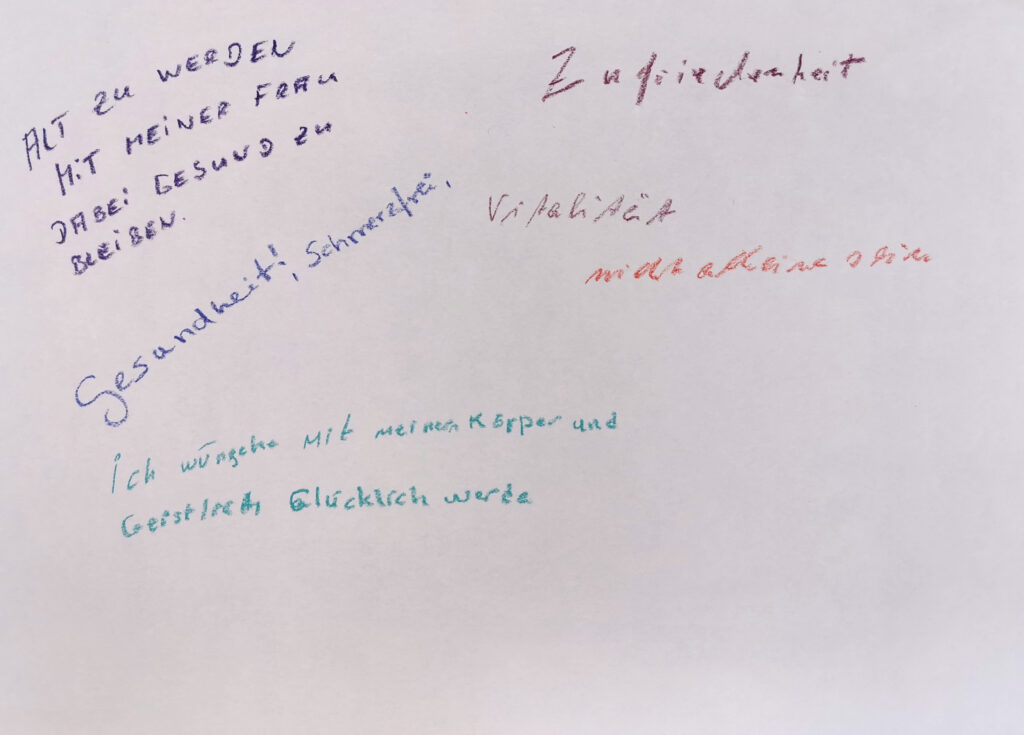 ALT ZU WERDEN
MIT MEINER FRAU
DABEI GESUND ZU
BLEIBEN.
Zufriedenheit
Vitalität
nicht alleine sein
Gesundheit!, Schmerzfrei,
ich wüngche Mit meinen Körper und
Geist Glücklich werde